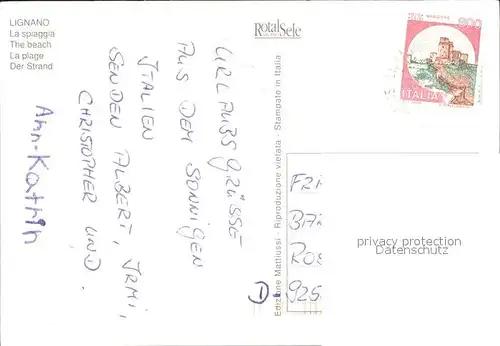 LIGNANO
La spiaggia
The beach
La plage
Der Strand
RotalSele
800
ITALIA
URLAUBSGRÜSSE
AUS DEM SONNIGEN
ITALIEN
SENDEN ALBERT, IRMI,
CHRISTOPHER UND
Ann-Kathrin
Edizione Mattiussi - Riproduzione vietata - Stampato in Italia
privacy protection
Datenschutz